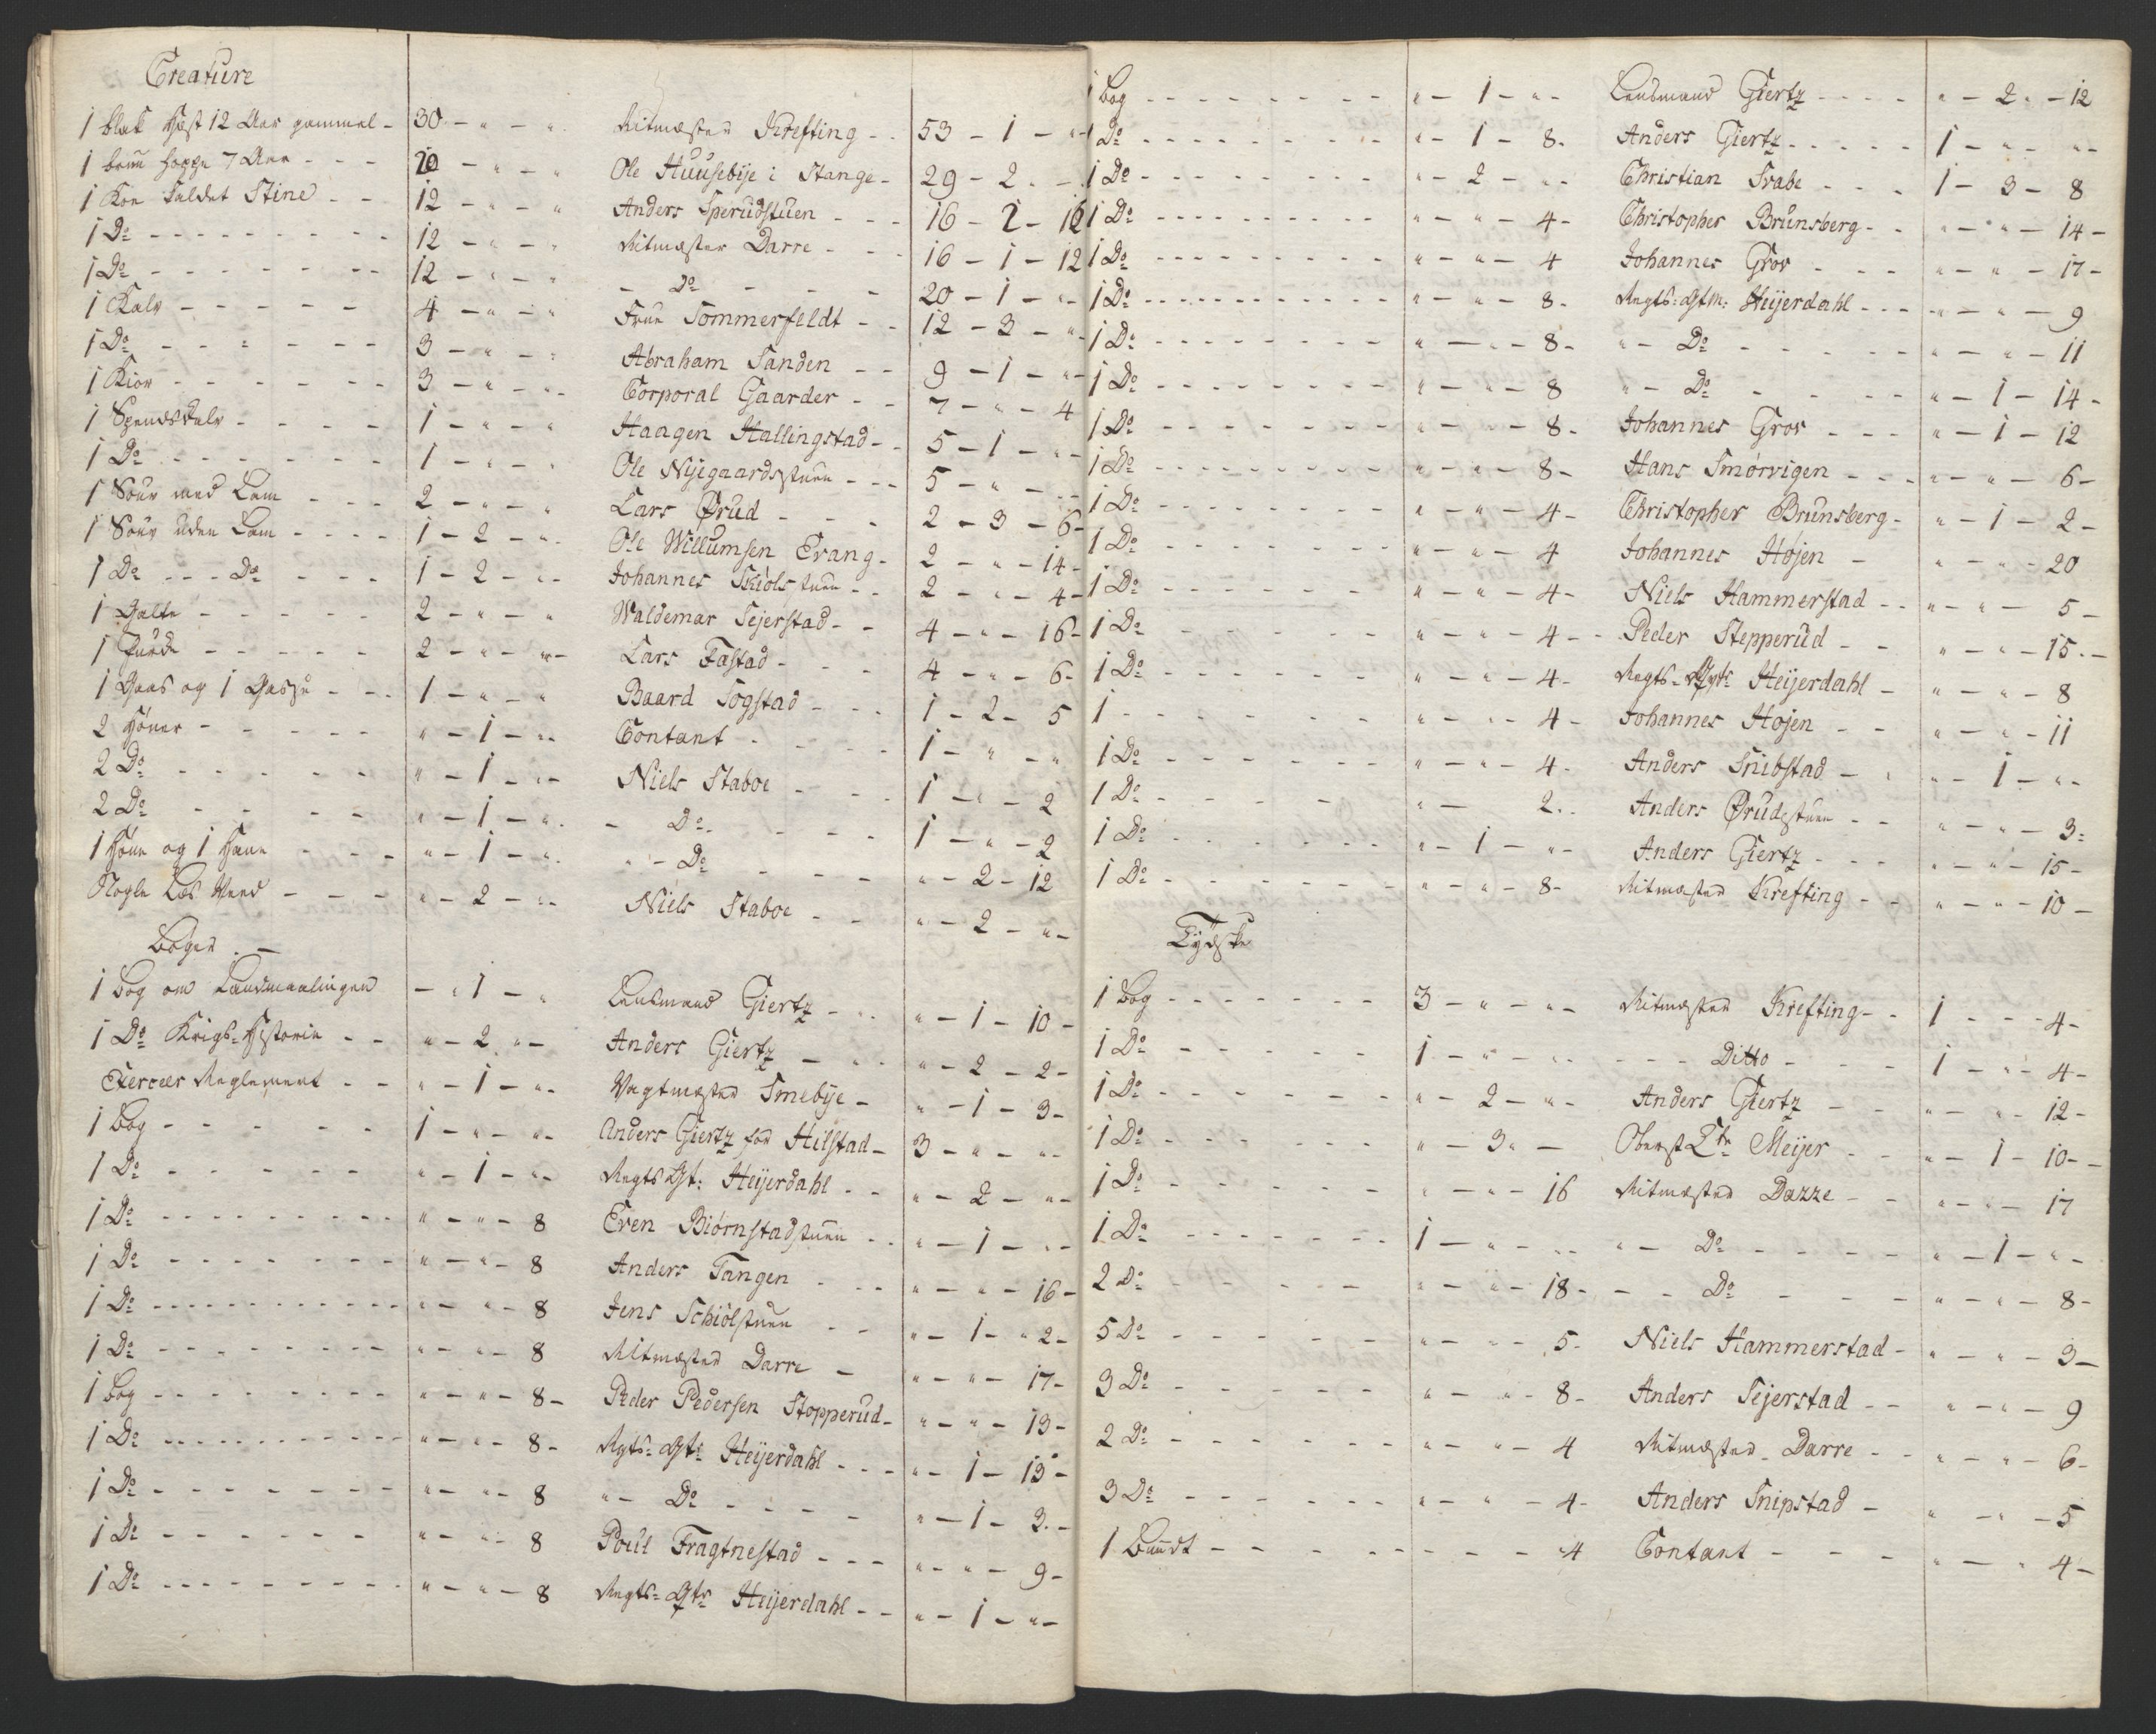 Creature
1 blak Hest 12 Aar gammel - 30 - " - " Ritmester Krefting - - 53 - 1 - "
1 brun Hoppe 7 Aar - - - 20 - " - " Ole Huusebÿe i Stange - 29 - 2 - -
1 Koe kaldet Stine - - 12 - " - " Anders Sperudstuen - - - 16 - 2 - 16
1 Do - - - 12 - " - " Ritmester Darre - - - 16 - 1 - 12
1 Do - - - 12 - " - " - Do - - - 20 - 1 - "
1 Kalv - - - 4 - " - " Frue Sommerfeldt - - 12 - 3 - "
1 Do - - - 3 - " - " Abraham Sanden - - 9 - 1 - "
1 Kior - - - 3 - " - " Corporal Gaarder - - 7 - " - 4
1 Spendekalv - - - 1 - " - " Haagen Hallingstad - - 5 - 1 - "
1 Do - - - 1 - " - " Ole Nÿegaardsstuen - - - 5 - " - "
1 Souv med Lam - - - 2 - " - " Lars Ørud - - - 2 - 3 - 6 -
1 Souv uden Lam - - - 1 - 2 - " Ole Willumsen Evang - 2 - " - 14 -
1 Do - - - Do - - - 1 - 2 - " Johannes Skiølstuen - - 2 - " - 4 -
1 Galte - - - 2 - " - " Waldemar Sejerstad - - 4 - " - 16 -
1 Purke - - - 2 - " - " Lars Fastad - - - 4 - " - 6 -
1 Gaas og 1 Gasse - - - 1 - " - " Baard Sogstad - - - 1 - 2 - 5
2 Høner - - - " - 1 - " Contant - - - 1 - " - "
2 Do - - - " - 1 - " Niels Staboe - - - 1 - " - 2
2 Do - - - " - 1 - " - Do - - - 1 - " - 2
1 Høne og 1 Hane - - - " - 1 - " " - Do - - - " - 2 - 12
Nogle Læs Veed - - - " - 2 - " Niels Staboe - - " - 2 - "
Bøger
1 Bog om Landmaalingen - " 1 - " Lensmand Giertz - - - " - 1 - 10 -
1 Do Krigs-Historie - - " - 2 " - Anders Giertz - - - " - 2 - 2 -
Exercer Reglement - - " - 1 - " Vagtmester Smebÿe - " - 1 - 3 -
1 Bog - - - 1 - " - " Anders Giertz for Hilstad - 3 - " - "
1 Do - - - " - 1 - " Regts Qt: Heÿerdahl - - " - 2 - "
1 Do - - - " - " - 8 Even Biørnstadstuen - - " - 1 - "
1 Do - - - " - " - 8 Anders Tangen - - - " - " - 16 -
1 Do - - - " - " - 8 Jens Schiølstuen - - " - 1 - " 2 -
1 Do - - - " - " - 8 Ritmester Darre - " - " - 17 -
1 Bog - - - " - " - 8 - Peder Pedersen Stopperud - " - " - 13 -
1 Do - - - " - " - 8 - Rgts: Qt: Heÿerdahl - - - " - 1 - 13 -
1 Do - - - " - " - 8 " - Do - - - " - 1 - 3 -
1 Do - - - " - " - 8 Poul Fragtnestad - - - " - " - 9 -
1 Do - - - " - " - 8 Regts: Qtr Heÿerdahl - - " - 1 - "
1 Bog - - - " - 1 - " Lensmand Giertz - - - " - 2 - 12
1 Do - - - " - 1 - 8 - Anders Giertz - - - 1 - " - "
1 Do - - - " - 2 - " Christian Srabe - - - 1 - 3 - 8
1 Do - - - " - " - 4 - Christopher Brunsberg - - " - " - 14 -
1 Do - - - " - " - 4 Johannes Grov - - - " - " - 17 -
1 Do - - - " - " - 8 - Regts: Qtm: Heÿerdahl - - - " - " - 9
1 Do - - - " - " - 8 - " - Do - - - " - " - 11
1 Do - - - " - " - 8 " - Do - - - " - 1 - 14 -
1 Do - - - " - " - 8 - Johannes Grov - - - " - 1 - 12
1 Do - - - " - " - 8 - Hans Smørvigen - - - " - " - 6 -
1 Do - - - " - " - 4 - Christopher Brunsberg - " - 1 - 2 -
1 Do - - - " - " - 4 Johannes Højen - " - " - 20
1 Do - - - " - " - 4 - Niels Hammerstad - - " - " - 5 -
1 Do - - - " - " - 4 - Peder Stepperud - - " - " - 15 -
1 Do - - - " - " - 4 - Regts - Qtr: Heÿerdahl - " - " - 8
1 - - - " - " - 4 - Johannes Højen - - " - " - 11
1 Do - - - " - " - 4 - Anders Snibstad - " - 1 - "
1 Do - - - " - 2 - Anders Ørudstuen - - " - " - 3 -
1 Do - - - " - 1 - " Anders Giertz - - - " - " - 15 -
1 Do - - - " - " - 8 - Ritmester Krefting - - " - " - 10 -
Tÿdske
1 Bog - - - 3 - " - " Ritmester Krefting - - 1 - - - 4 -
1 Do - - - 1 - " - " - - - Ditto - - - 1 - " - 4 -
1 Do - - - " - 2 - " Anders Giertz - - " - " - 12 -
1 Do - - - " - 3 " - Oberst Ltn Meÿer - - " - 1 - 10 -
1 Do - - - " - " - 16 Ritmester Dazze - - " - " - 17
1 Do - - - 1 - " - " " - Do - - - " - 1 - "
2 Do - - - " - " - 18 - - - Do - - - " - " - 8 -
5 Do - - - " - " - 5 - Niels Hammerstad - " - " - 3 -
3 Do - - - " - " - 8 - Anders Sejerstad - - " - " - 9
2 Do - - - " - " - 4 Ritmester Darre - - " - " - 6 -
3 Do - - - " - " - 4 - Anders Snipstad - " - " - 5
1 Bundt - - - - - - 4 Contant - - - " - " 4 -